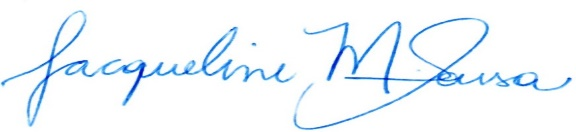 Jacqueline M. Sousa